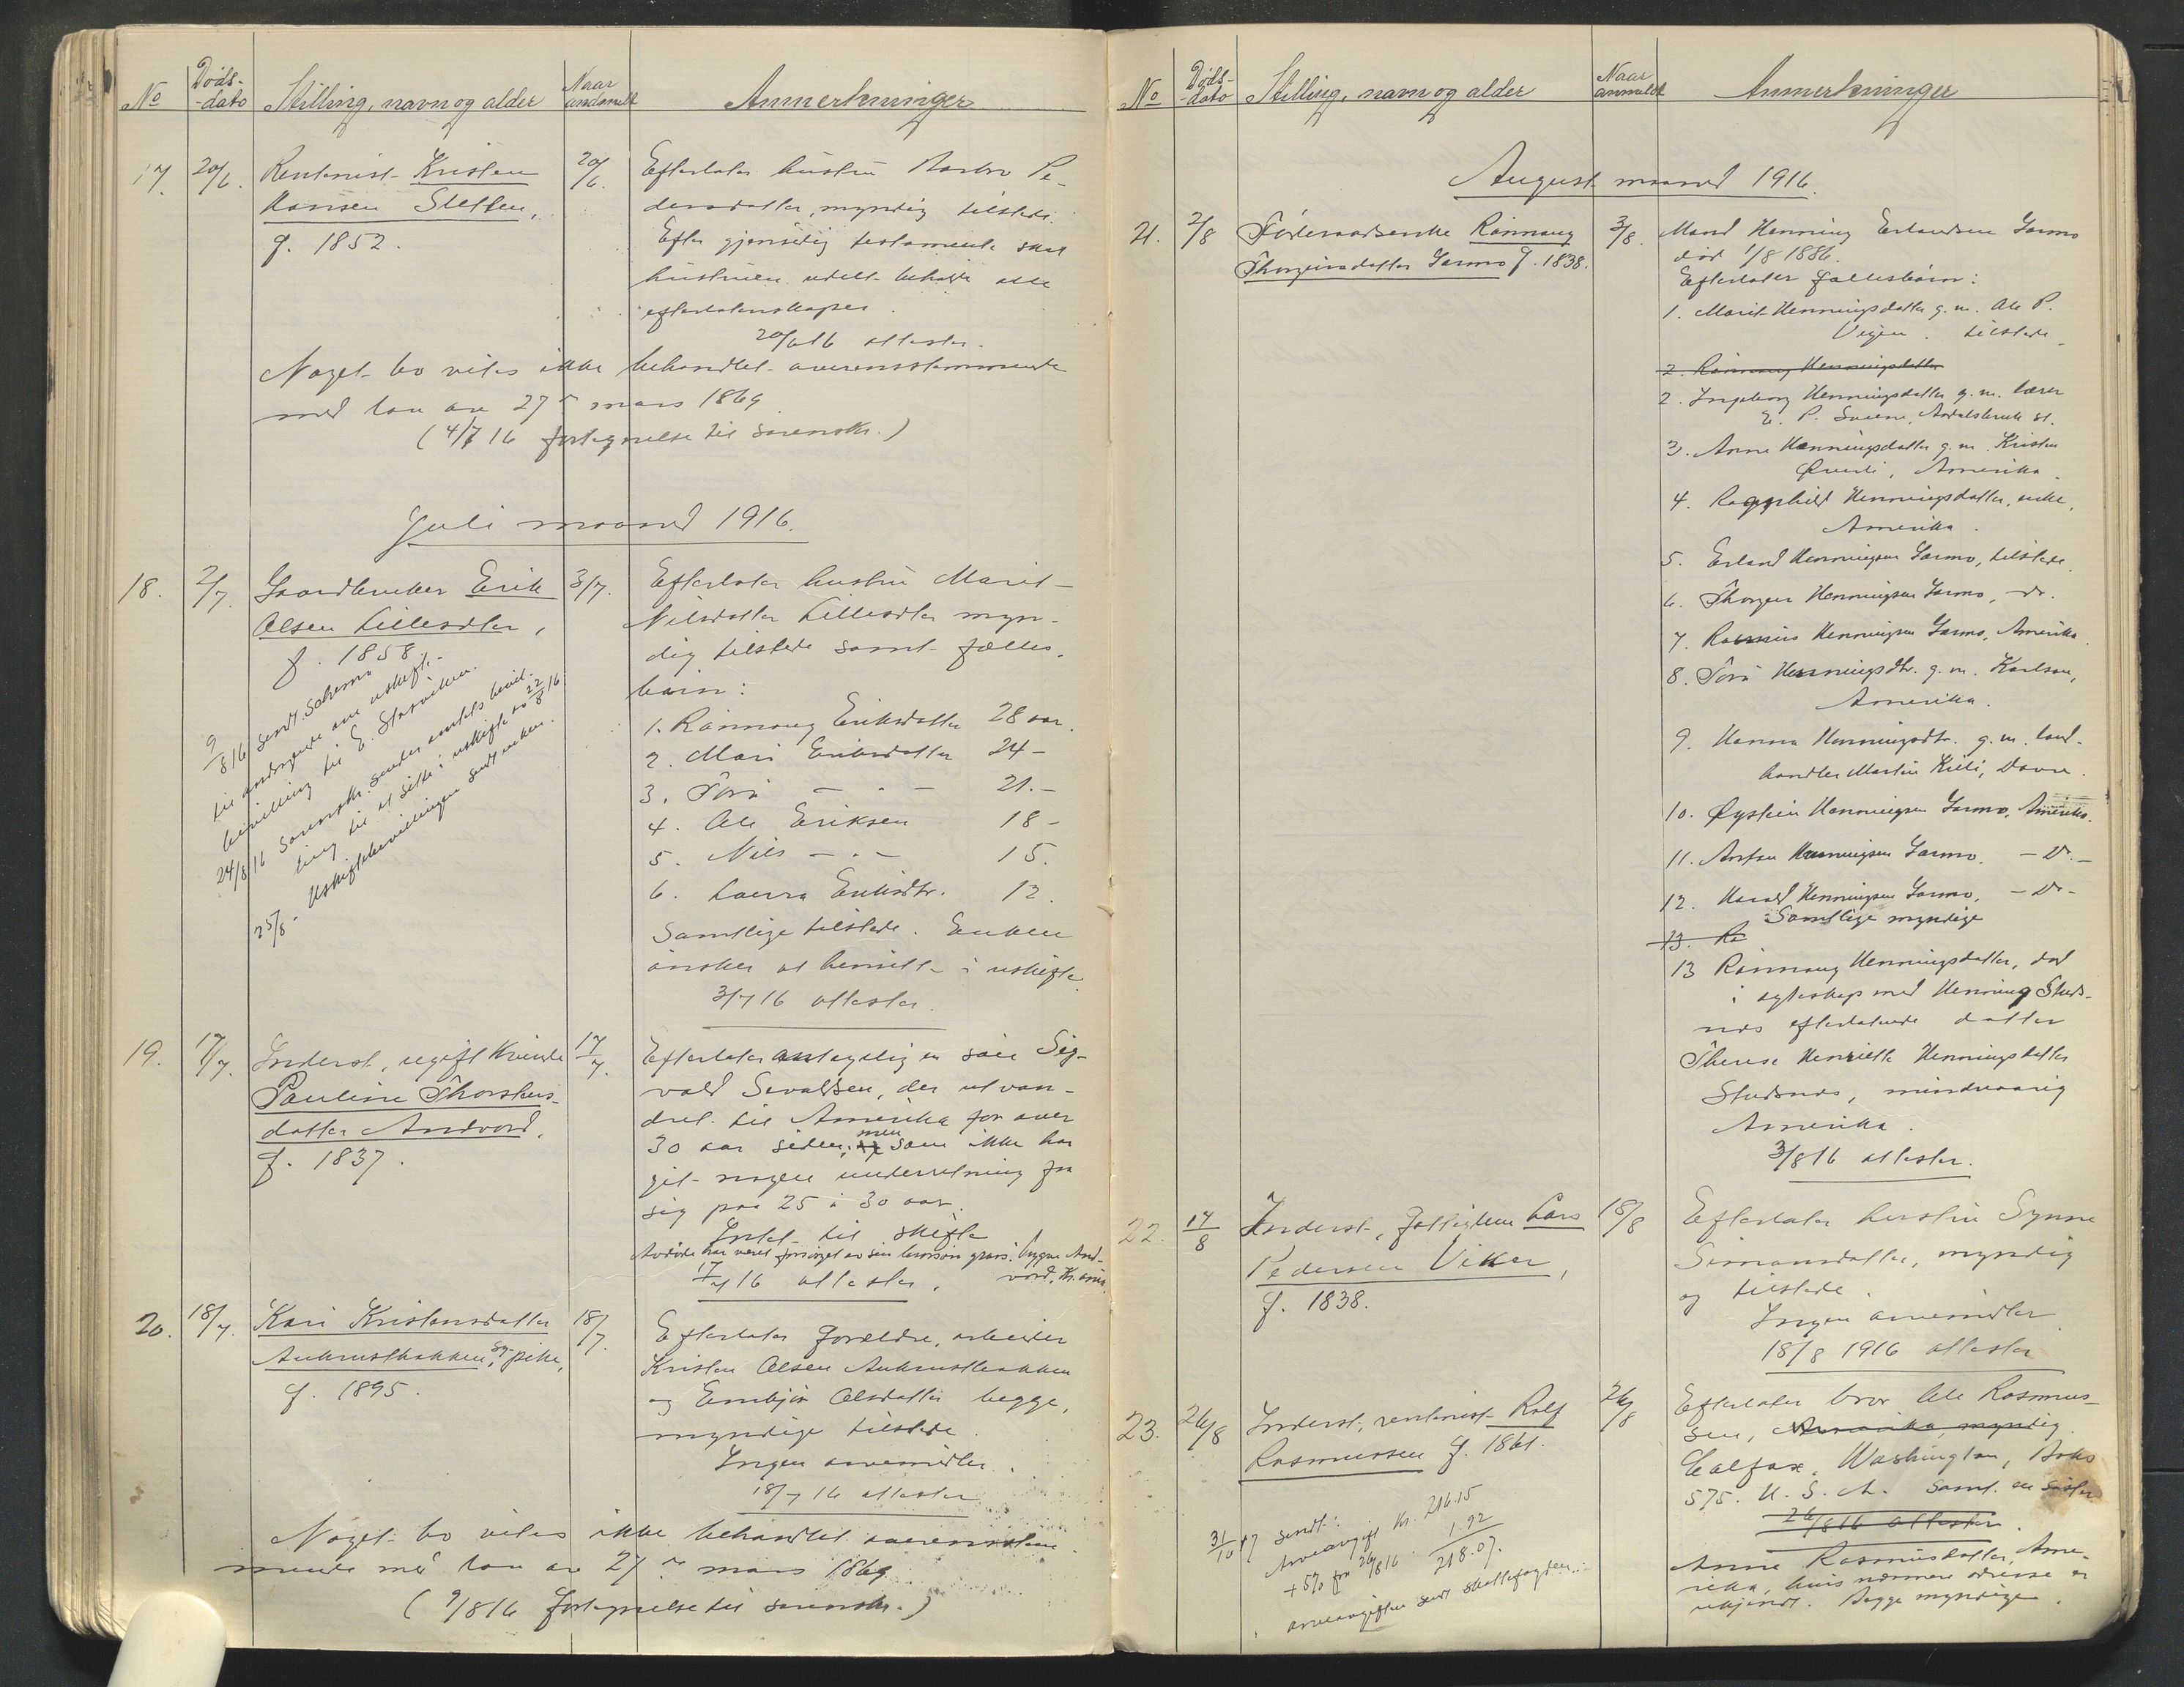 No Döds-dato Stilling, navn og alder Naar anmeldt Anmerkninger
17. 20/6. Rentenist Kristen
Hansen Sletten,
f. 1852.
20/6. Efterlater hustru Barbro Pe-
dersdatter, myndig tilstede.
Efter gjensidig testamente skal
hustruen udelt beholde alle
efterlatenskaper.
20/6 16 attester.
Noget bo vites ikke behandlet overensstemmende
med lov av 27de mars 1869
(4/7 16 fortegnelse til sorenskr.)
Juli maaned 1916.
18. 2/7. Gaardbruker Erik
Olsen Lilleodler,
f. 1858.
9/8 16 sendt schema
til andragende om uskifte-
bevilling til E. Starviken.
24/8 16 Sorenskr. sender amtets bevil-
ling til at sitte i uskifte av 22/8 16
25/8. Uskiftebevillingen sendt enken.
3/7. Efterlater hustru Marit
Nilsdatter Lilleodler myn-
dig tilstede samt fælles-
børn:
1. Rønnaug Eriksdatter 28 aar.
2. Mari Eriksdatter 24 –
3. Tora – " – 21. –
4. Ole Eriksen 18 –
5. Nils – " – 15.
6. Laura Eriksdtr. 12.
Samtlige tilstede. Enken
ønsker at hensitte i uskifte
3/7 16 attester.
19. 17/7. Inderst, ugift kvinde
Pauline Thorsteins-
datter Andvord,
f. 1837.
17/7. Efterlater antagelig en søn Sig-
vald Sivaldsen, der utvan-
dret til Amerika for over
30 aar siden, men som ikke har
git nogen underretning fra
sig paa 25 à 30 aar.
Intet til skifte
Avdøde har været forsørget av sin brorsøn gros. Trygve And-
vord, Kr.ania.
17/7 16 attester.
20. 18/7. Kari Kristensdatter
Aukrustbakken, sy-pike,
f. 1895.
18/7. Efterlater forældre, arbeider
Kristen Olsen Aukrustbakken
og Embjør Olsdatter begge,
myndige tilstede.
Ingen arvemidler.
18/7 16 attester
Noget bo vites ikke behandlet overensstem-
mende med lov av 27de mars 1869.
(9/8 16 fortegnelse til sorenskr.)
No Döds-dato Stilling, navn og alder Naar anmeldt Anmerkninger
August maaned 1916.
21. 2/8 Føderaadsenke Rønnaug
Thorgeirsdatter Garmo f. 1838.
3/8. Mand Henning Erlandsen Garmo
død 1/8 1886.
Efterlater fællesbørn:
1. Marit Henningsdatter g. m. Ole P.
Vigen. tilstede
2. Rønnaug Henningsdatter
2. Ingeborg Henningsdatter g. m. lærer
E. P. Sveen, Aadalsbruk st.
3. Anne Henningsdatter g. m. Kristen
Øverli, Amerika.
4. Ragnhild Henningsdatter, enke,
Amerika.
5. Erland Henningsen Garmo, tilstede.
6. Thorgeir Henningsen Garmo, – Do.
7. Rasmus Henningsen Garmo, Amerika.
8. Tora Henningsdtr. g. m. Karlson,
Amerika.
9. Hanna Henningsdtr. g. m. land-
handler Martin Kileli, Dovre.
10. Øystein Henningsen Garmo, Amerika.
11. Anton Henningsen Garmo. – Do. –
12. Harald Henningsen Garmo, – Do –
Samtlige myndige
13. Rø
13 Rønnaug Henningsdatter, død
i egteskap med Henning Studs-
nes efterlatende datter
Therese Henriette Henningsdatter
Studsnes, mindreaarig
Amerika.
3/8 16 attester.
22. 17/8 Inderst, fattiglem Lars
Pedersen Viker,
f. 1838.
18/8 Efterlater hustru Synne
Simonsdatter, myndig
og tilstede.
Ingen arvemidler
18/8 1916 attester
23. 26/8 Inderst, rentenist Rolf
Rasmussen f. 1861.
31/10 17 sendt:
Arveavgift kr. 216.15
+ 5% fra 26/8 16 1.92
218.07.
arveavgiften sendt skattefogden.
26/8 Efterlater bror Ole Rasmus-
sen, Amerika, myndig
Colfax, Washington, Boks
575. U. S. A. samt en søster
26/8 16 attester.
Anne Rasmusdatter, Ame-
rika, hvis nærmere adresse er
ukjendt. Begge myndige.